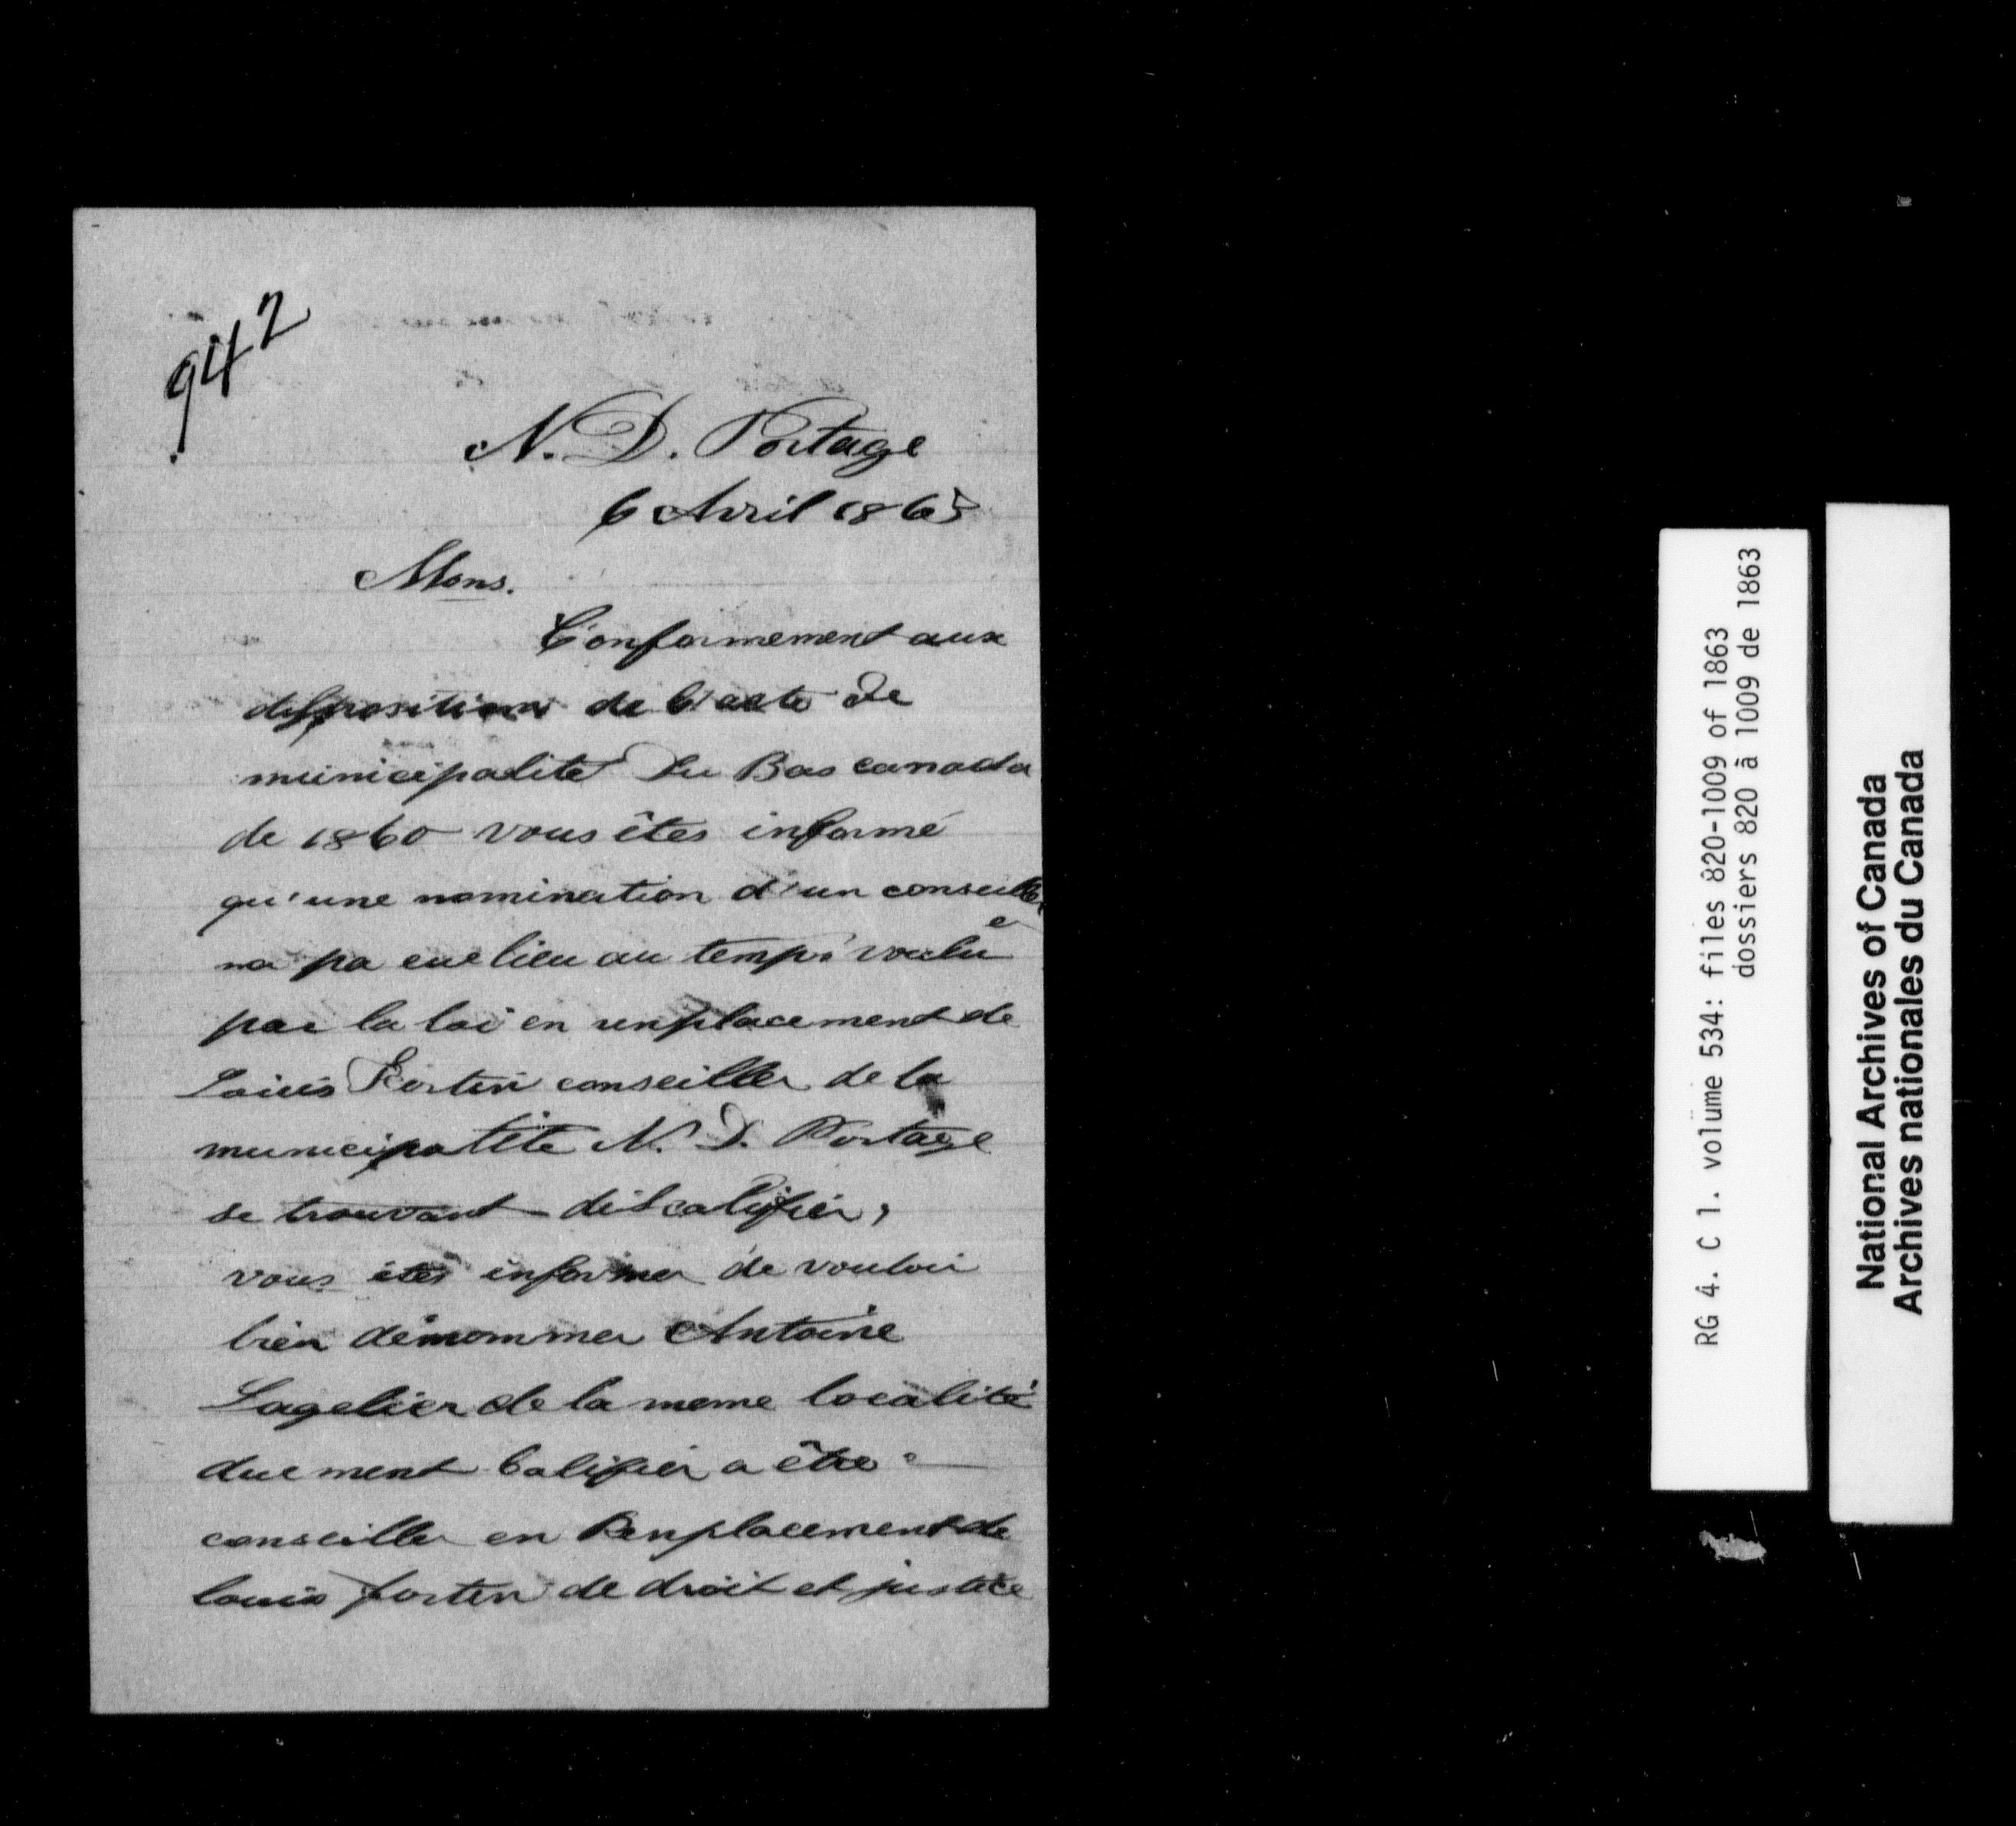 942
N. D. Portage
6 Avril 1863
Mons.
Conformement aux
disposition de l'acte de
municipalité du Bas canada
de 1860 vous êtes informé
qu'une nomination d'un conseiller
na pa eue lieu au temps voulu
par la loi en renplacement de
Louis Fortin conseiller de la
municipalité N. D. Portage
se trouvant discalifier,
vous êtes informer de vouloir
bien démommer Antoine
Lagelier de la meme localité
duement Califier a être
conseiller en Renplacement de
louis fortin de droit et justice
RG 4. C 1. volume 534: files 820-1009 of 1863
dossiers 820 à 1009 de 1863
National Archives of Canada
Archives nationales du Canada